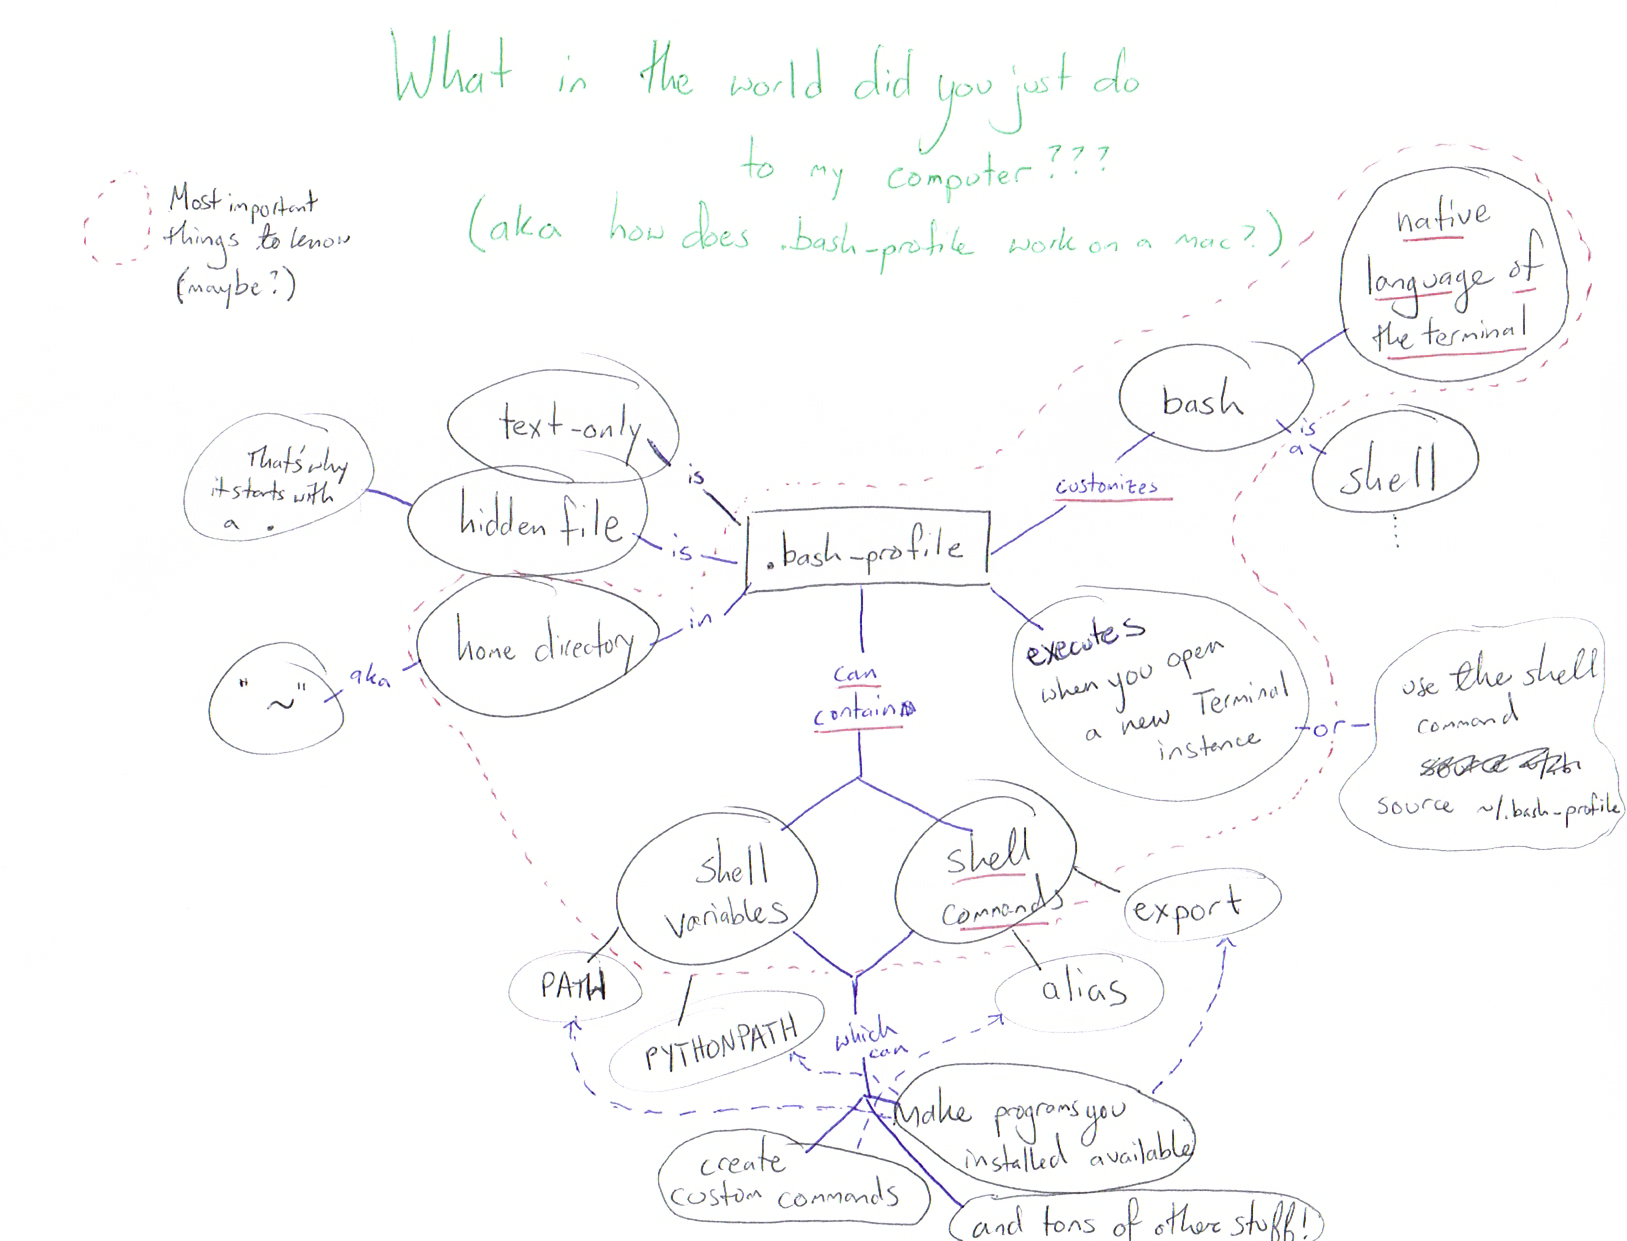 What in the world did you just do
to my computer???
(aka how does .bash-profile work on a mac?)
Most important
things to know
(maybe?)
native
language of
the terminal
bash
is
a
shell
customizes
text-only
is
That's why
it starts with
a .
hidden file
is
.bash-profile
home directory
in
aka
"~"
can
contain
executes
when you open
a new Terminal
instence
or
use the shell
command
source ~/.bash-profile
shell
variables
shell
commands
export
PATH
alias
PYTHONPATH
which
can
Make programs you
installed available
create
custom commands
and tons of other stuff!